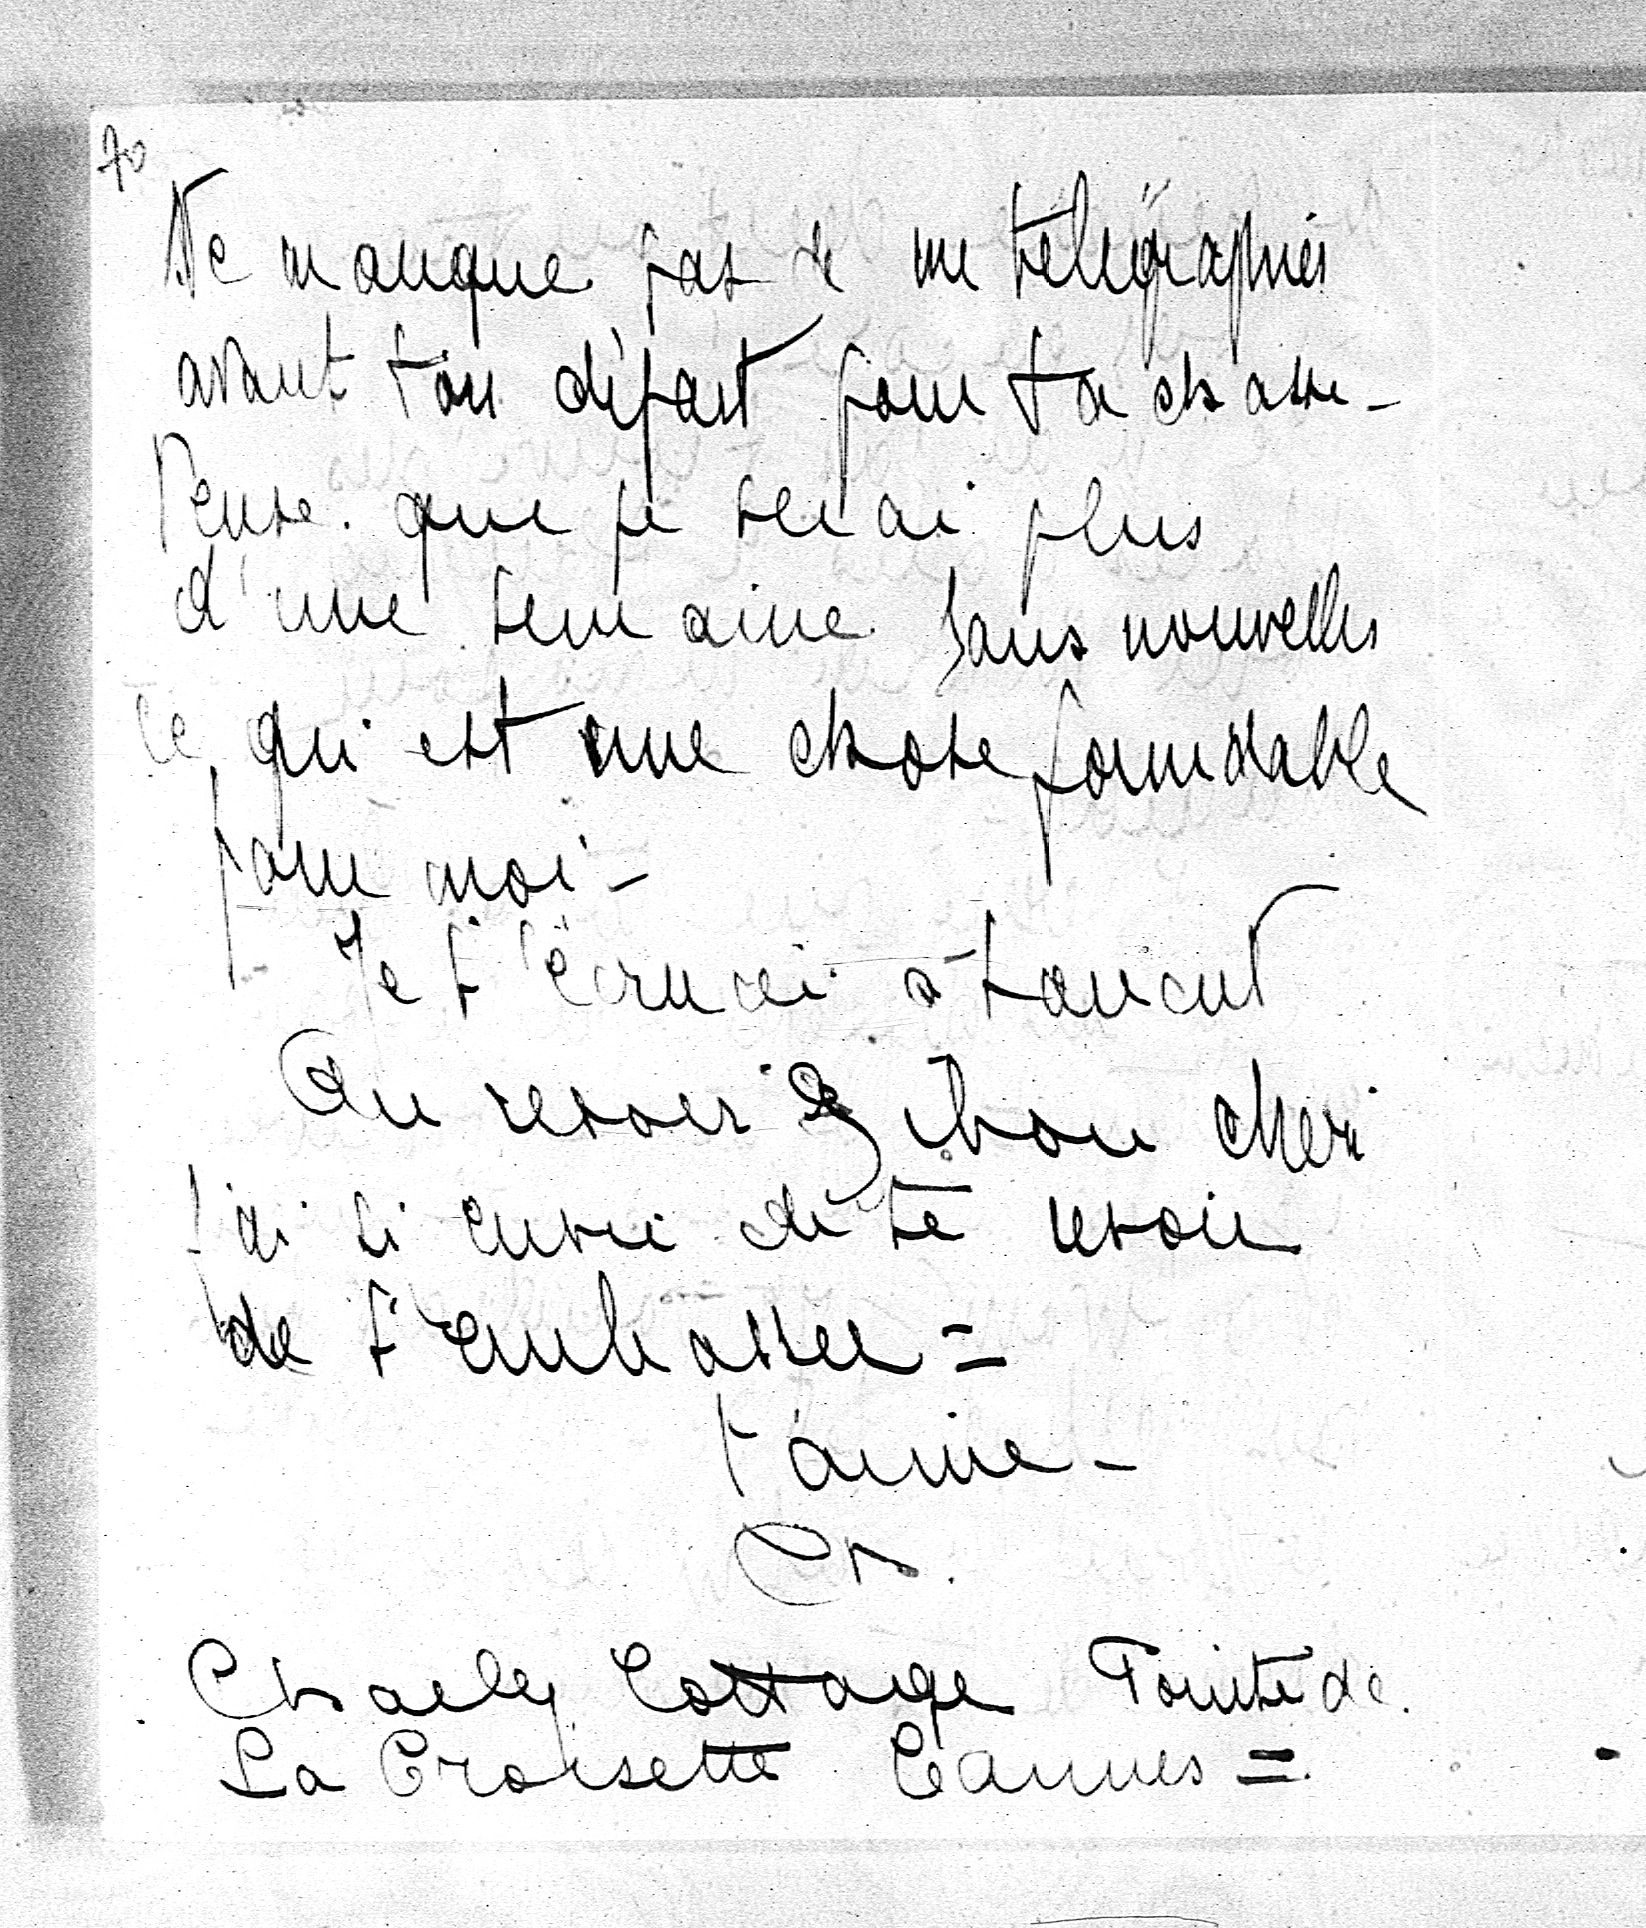 70
Ne manque pas de me télégraphier
avant ton départ pour ta chasse -
Pense que je serai plus
d'une semaine sans nouvelles
ce qui est une chose formidable
pour moi -
Je t'écrirai
Au revoir chéri
j'ai si envie de te revoir
de t'embrasser =
t'aime -
Ch.
Charley Cottage Pointe de
La Croisette Cannes =